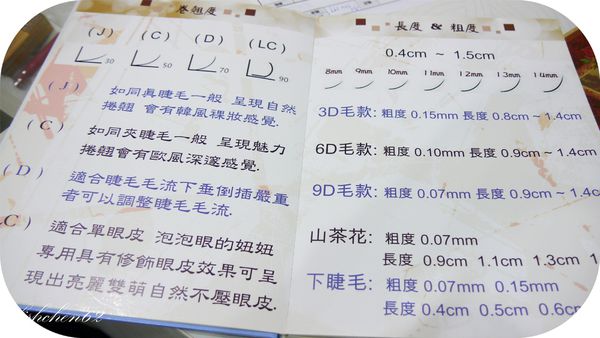 卷翹度
(J) (C) (D) (LC)
30 50 70 90
(J) 如同真睫毛一般 呈現自然
捲翹 會有韓風裸妝感覺.
(C) 如同夾睫毛一般 呈現魅力
捲翹會有歐風深邃感覺.
(D) 適合睫毛毛流下垂倒插嚴重
者可以調整睫毛毛流.
LC) 適合單眼皮 泡泡眼的妞妞
專用具有修飾眼皮效果可呈
現出亮麗雙萌自然不壓眼皮.
長度 & 粗度
0.4cm ~ 1.5cm
8mm 9mm 10mm 11mm 12mm 13mm 14mm
3D毛款: 粗度 0.15mm 長度 0.8cm ~ 1.4cm
6D毛款: 粗度 0.10mm 長度 0.9cm ~ 1.4cm
9D毛款: 粗度 0.07mm 長度 0.9cm ~ 1.4c
山茶花: 粗度 0.07mm
長度 0.9cm 1.1cm 1.3cm 1
下睫毛: 粗度 0.07mm 0.15mm
長度 0.4cm 0.5cm 0.6c